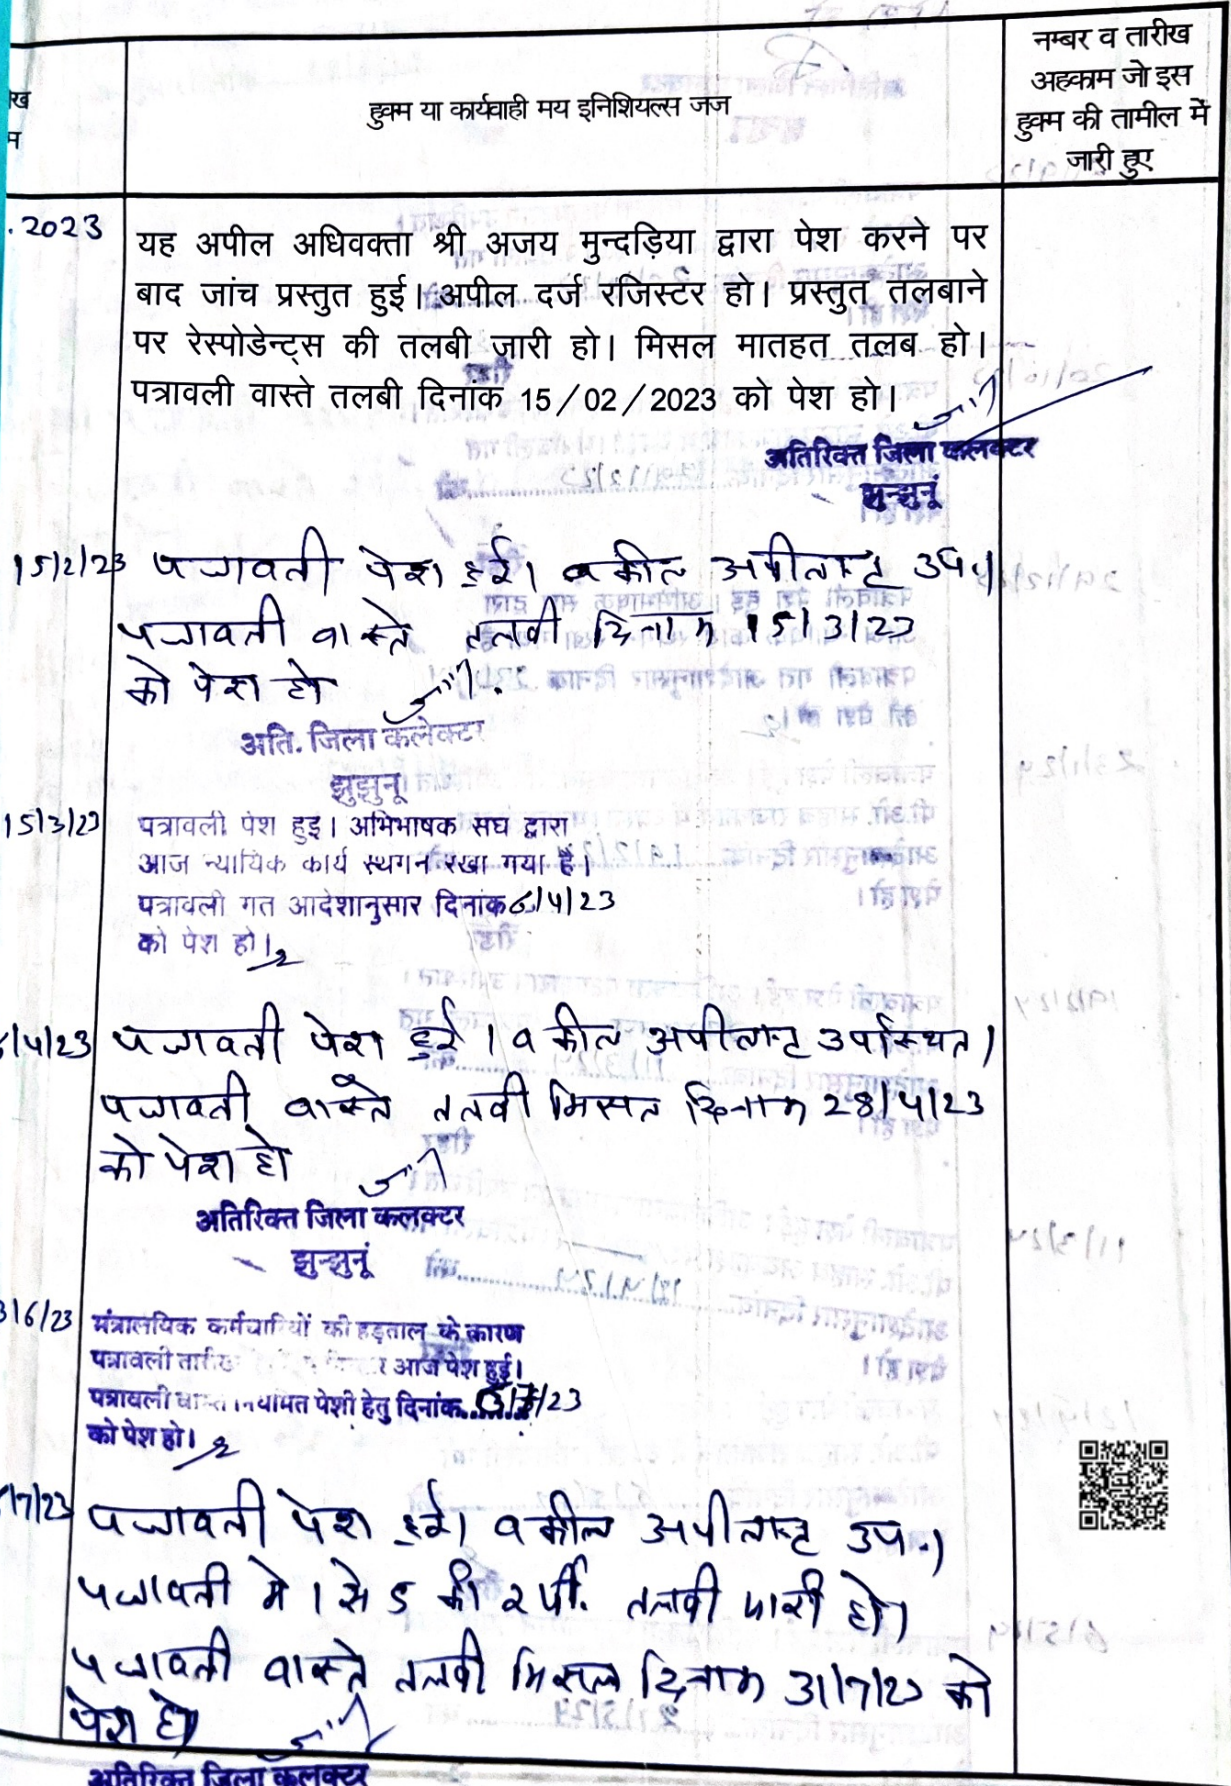 नम्बर व तारीख
अहकाम जो इस
हुक्म की तामील में
जारी हुए
हुक्म या कार्यवाही मय इनिशियल्स जज
. 2023
यह अपील अधिवक्ता श्री अजय मुन्दड़िया द्वारा पेश करने पर
बाद जांच प्रस्तुत हुई। अपील दर्ज रजिस्टर हो। प्रस्तुत तलबाने
पर रेस्पोडेन्ट्स की तलबी जारी हो। मिसल मातहत तलब हो।
पत्रावली वास्ते तलबी दिनांक 15/02/2023 को पेश हो।
अतिरिक्त जिला कलक्टर
झुन्झुनूं
15/2/23 पत्रावली पेश हुई। वकील अपीलान्ट उप।
पत्रावली वास्ते तलबी दिनांक 15/3/23
को पेश हो
अति. जिला कलेक्टर
झुझुनू
15/3/23 पत्रावली पेश हुइ। अभिभाषक सघ द्वारा
आज न्यायिक कार्य स्थगन रखा गया है।
पत्रावली गत आदेशानुसार दिनांक 6/4/23
को पेश हो।
/4/23 पत्रावली पेश हुई। वकील अपीलान्ट उपस्थित।
पत्रावली वास्ते तलबी मिसल दिनांक 28/4/23
को पेश हो
अतिरिक्त जिला कलक्टर
झुन्झुनूं
/6/23 मंत्रालयिक कर्मचारियों की हड़ताल के कारण
पत्रावली आज पेश हुई।
पत्रावली पेशी हेतु दिनांक /7/23
को पेश हो।
/7/23 पत्रावली पेश हुई। वकील अपीलान्ट उप।
पत्रावली मे 1 से 5 की तलबी जारी हो।
पत्रावली वास्ते तलबी मिसल दिनांक 31/7/23 को
पेश हो
अतिरिक्त जिला कलक्टर